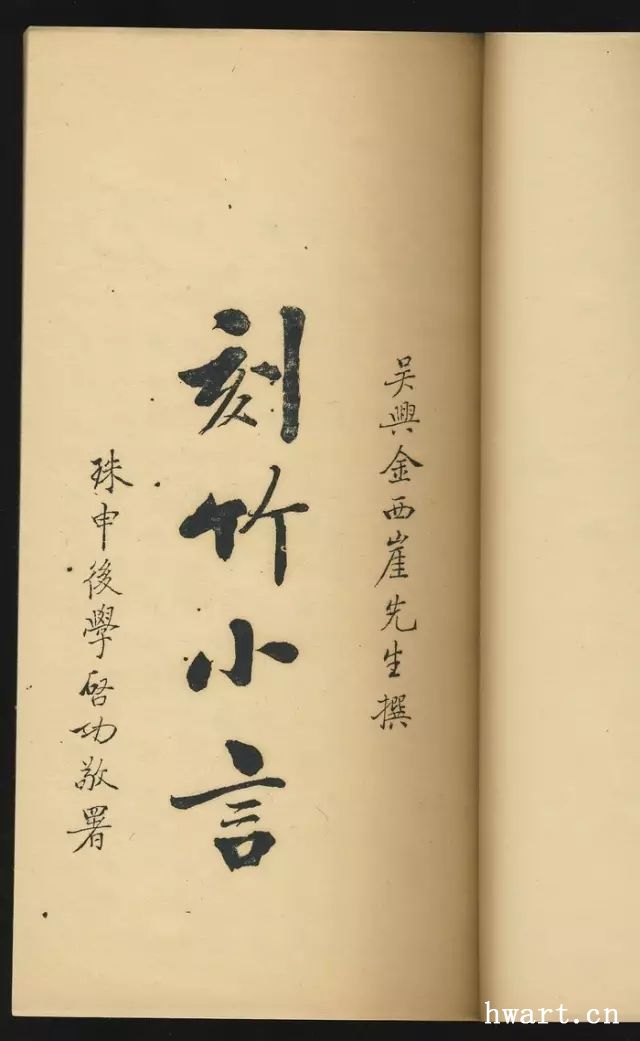 吴興金西崖先生撰
刻竹小言
珠申後學啓功敬署
hwart.cn